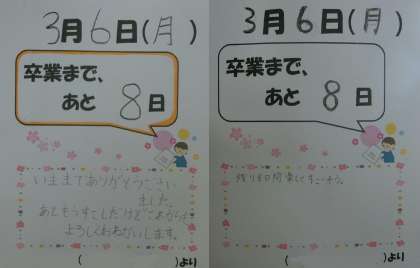 3月6日(月)
卒業まで、
あと 8日
いままでありがとうござい
ました。
あともうすこしだけどこれからも
よろしくおねがいします。
(     )より
3月6日(月)
卒業まで、
あと 8日
残り8日間楽しくすごそう。
(     )より